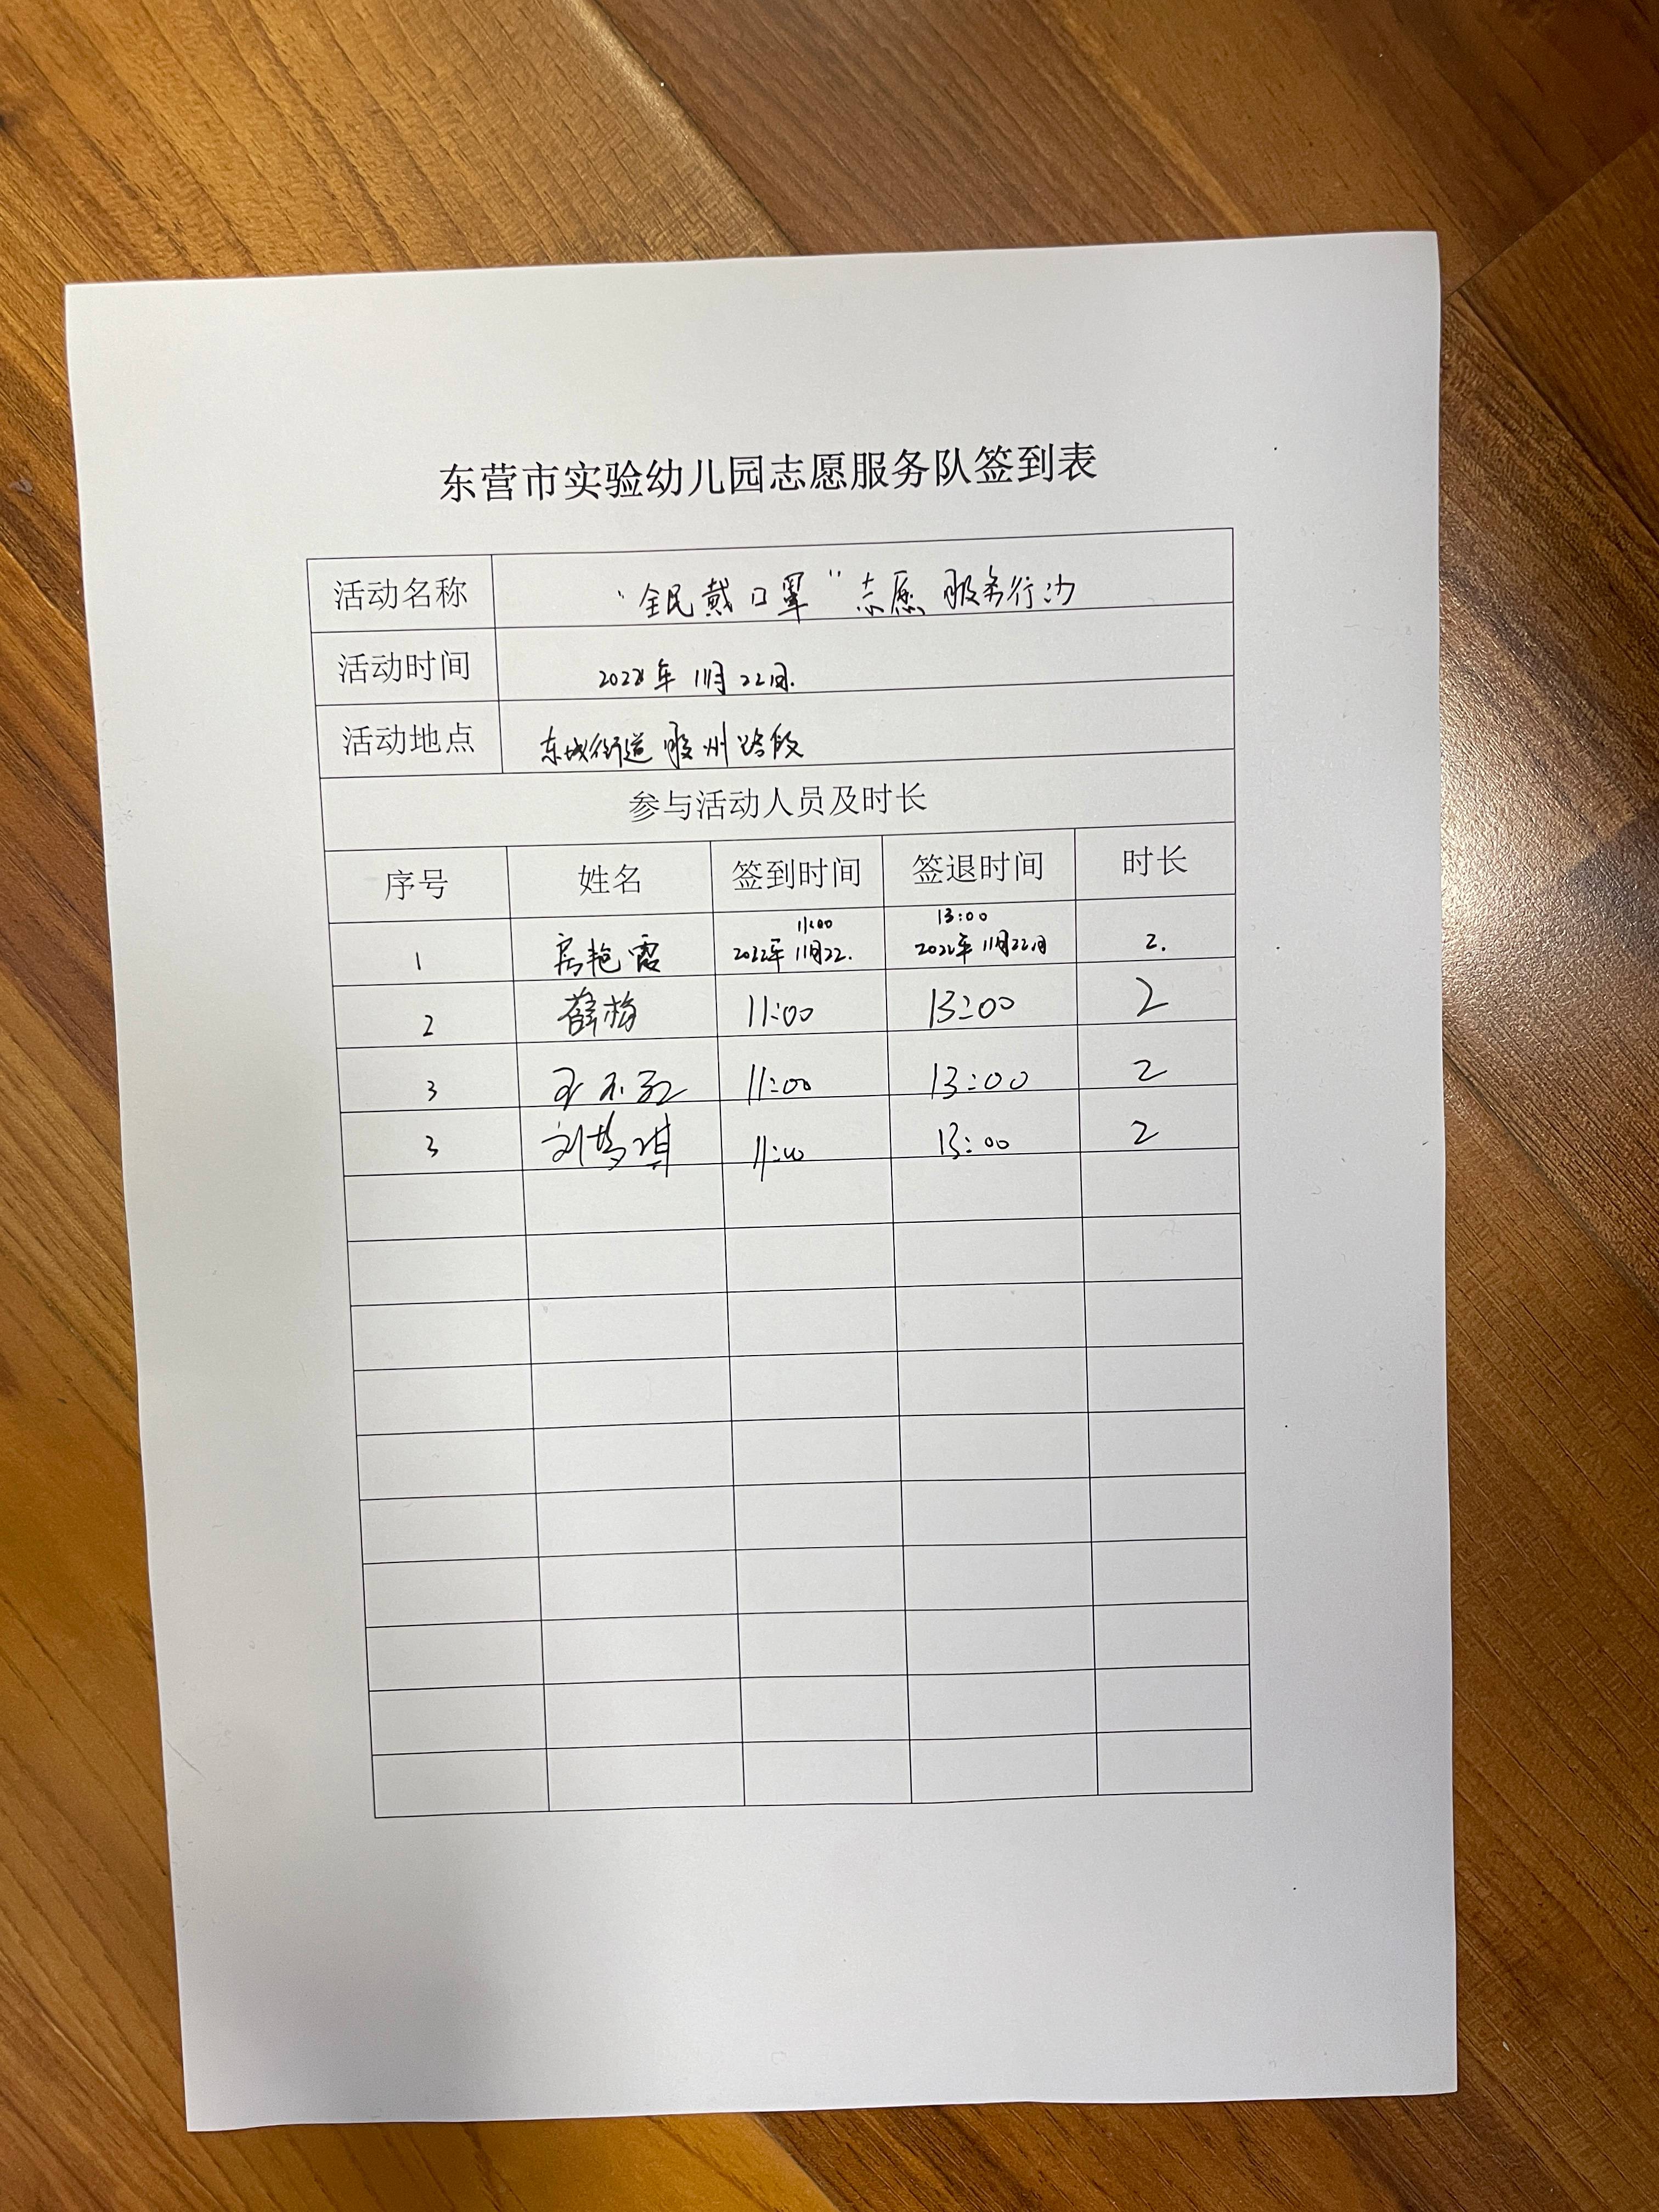 东营市实验幼儿园志愿服务队签到表
活动名称 “全民戴口罩”志愿服务行动
活动时间 2022年11月22日.
活动地点 东城街道胶州路段
参与活动人员及时长
序号 姓名 签到时间 签退时间 时长
1 房艳霞 11:00 2022年11月22. 13:00 2022年11月22日 2.
2 薛梅 11:00 13:00 2
3 11:00 13:00 2
3 刘梦琪 11:00 13:00 2